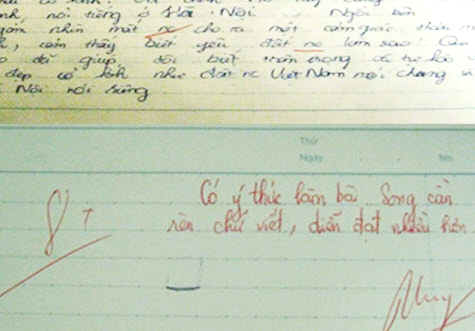 nh, nổi tiếng ở Hà Nội ... Ngồi bên
ngắm nhìn mặt nc cho ra một cảm giác
, cảm thấy biết yêu đất nc hơn sao! Qua
đã giúp tôi biết trân trọng
đẹp có như đất nc Việt Nam nói chung và
Nội nói riêng
Thứ
Ngày No.
8+
Có ý thức làm bài. Song cần
rèn chữ viết, diễn đạt nhiều hơn